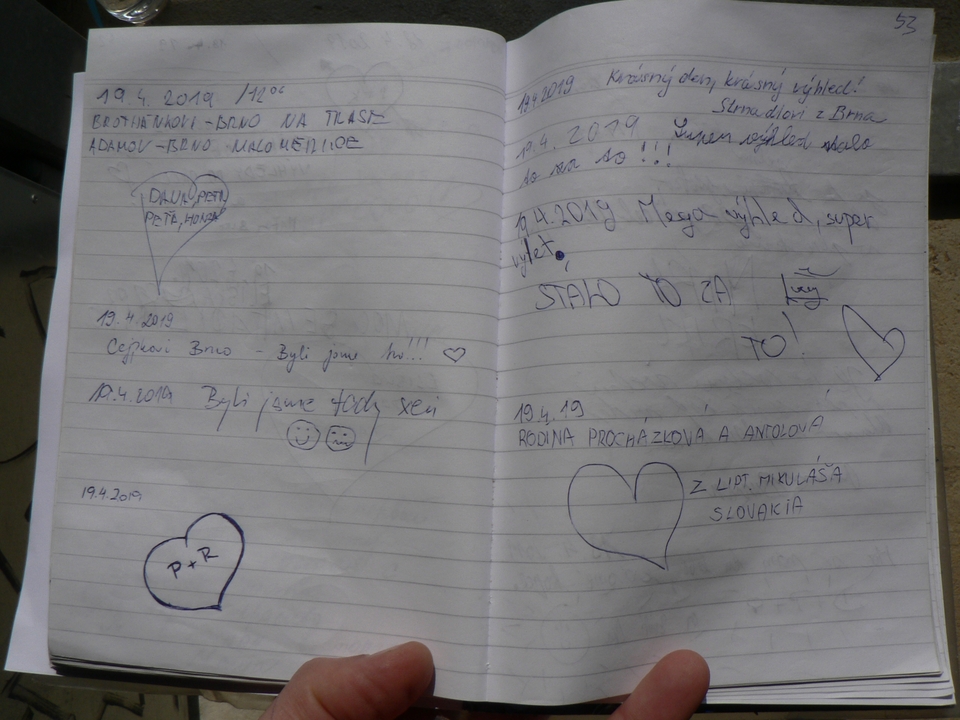 19.4.2019 /12⁰⁰
- BRNO NA TRASE
ADAMOV - BRNO MALOMĚŘICE
PETR
PETR, HONZA
19.4.2019
Brno - Byli jsme tu!!! ♡
19.4.2019 Byli jsme tady
19.4.2019
P + R
53
19.4.2019 Krásný den, krásný výhled!
Strnadlovi z Brna
19.4.2019 Super výhled stálo
to za to!!!
19.4.2019 Mega výhled, super
výlet
STÁLO TO ZA
TO!
19.4.19
RODINA PROCHÁZKOVÁ A ANTOLOVÁ
Z LIPT. MIKULÁŠA
SLOVAKIA